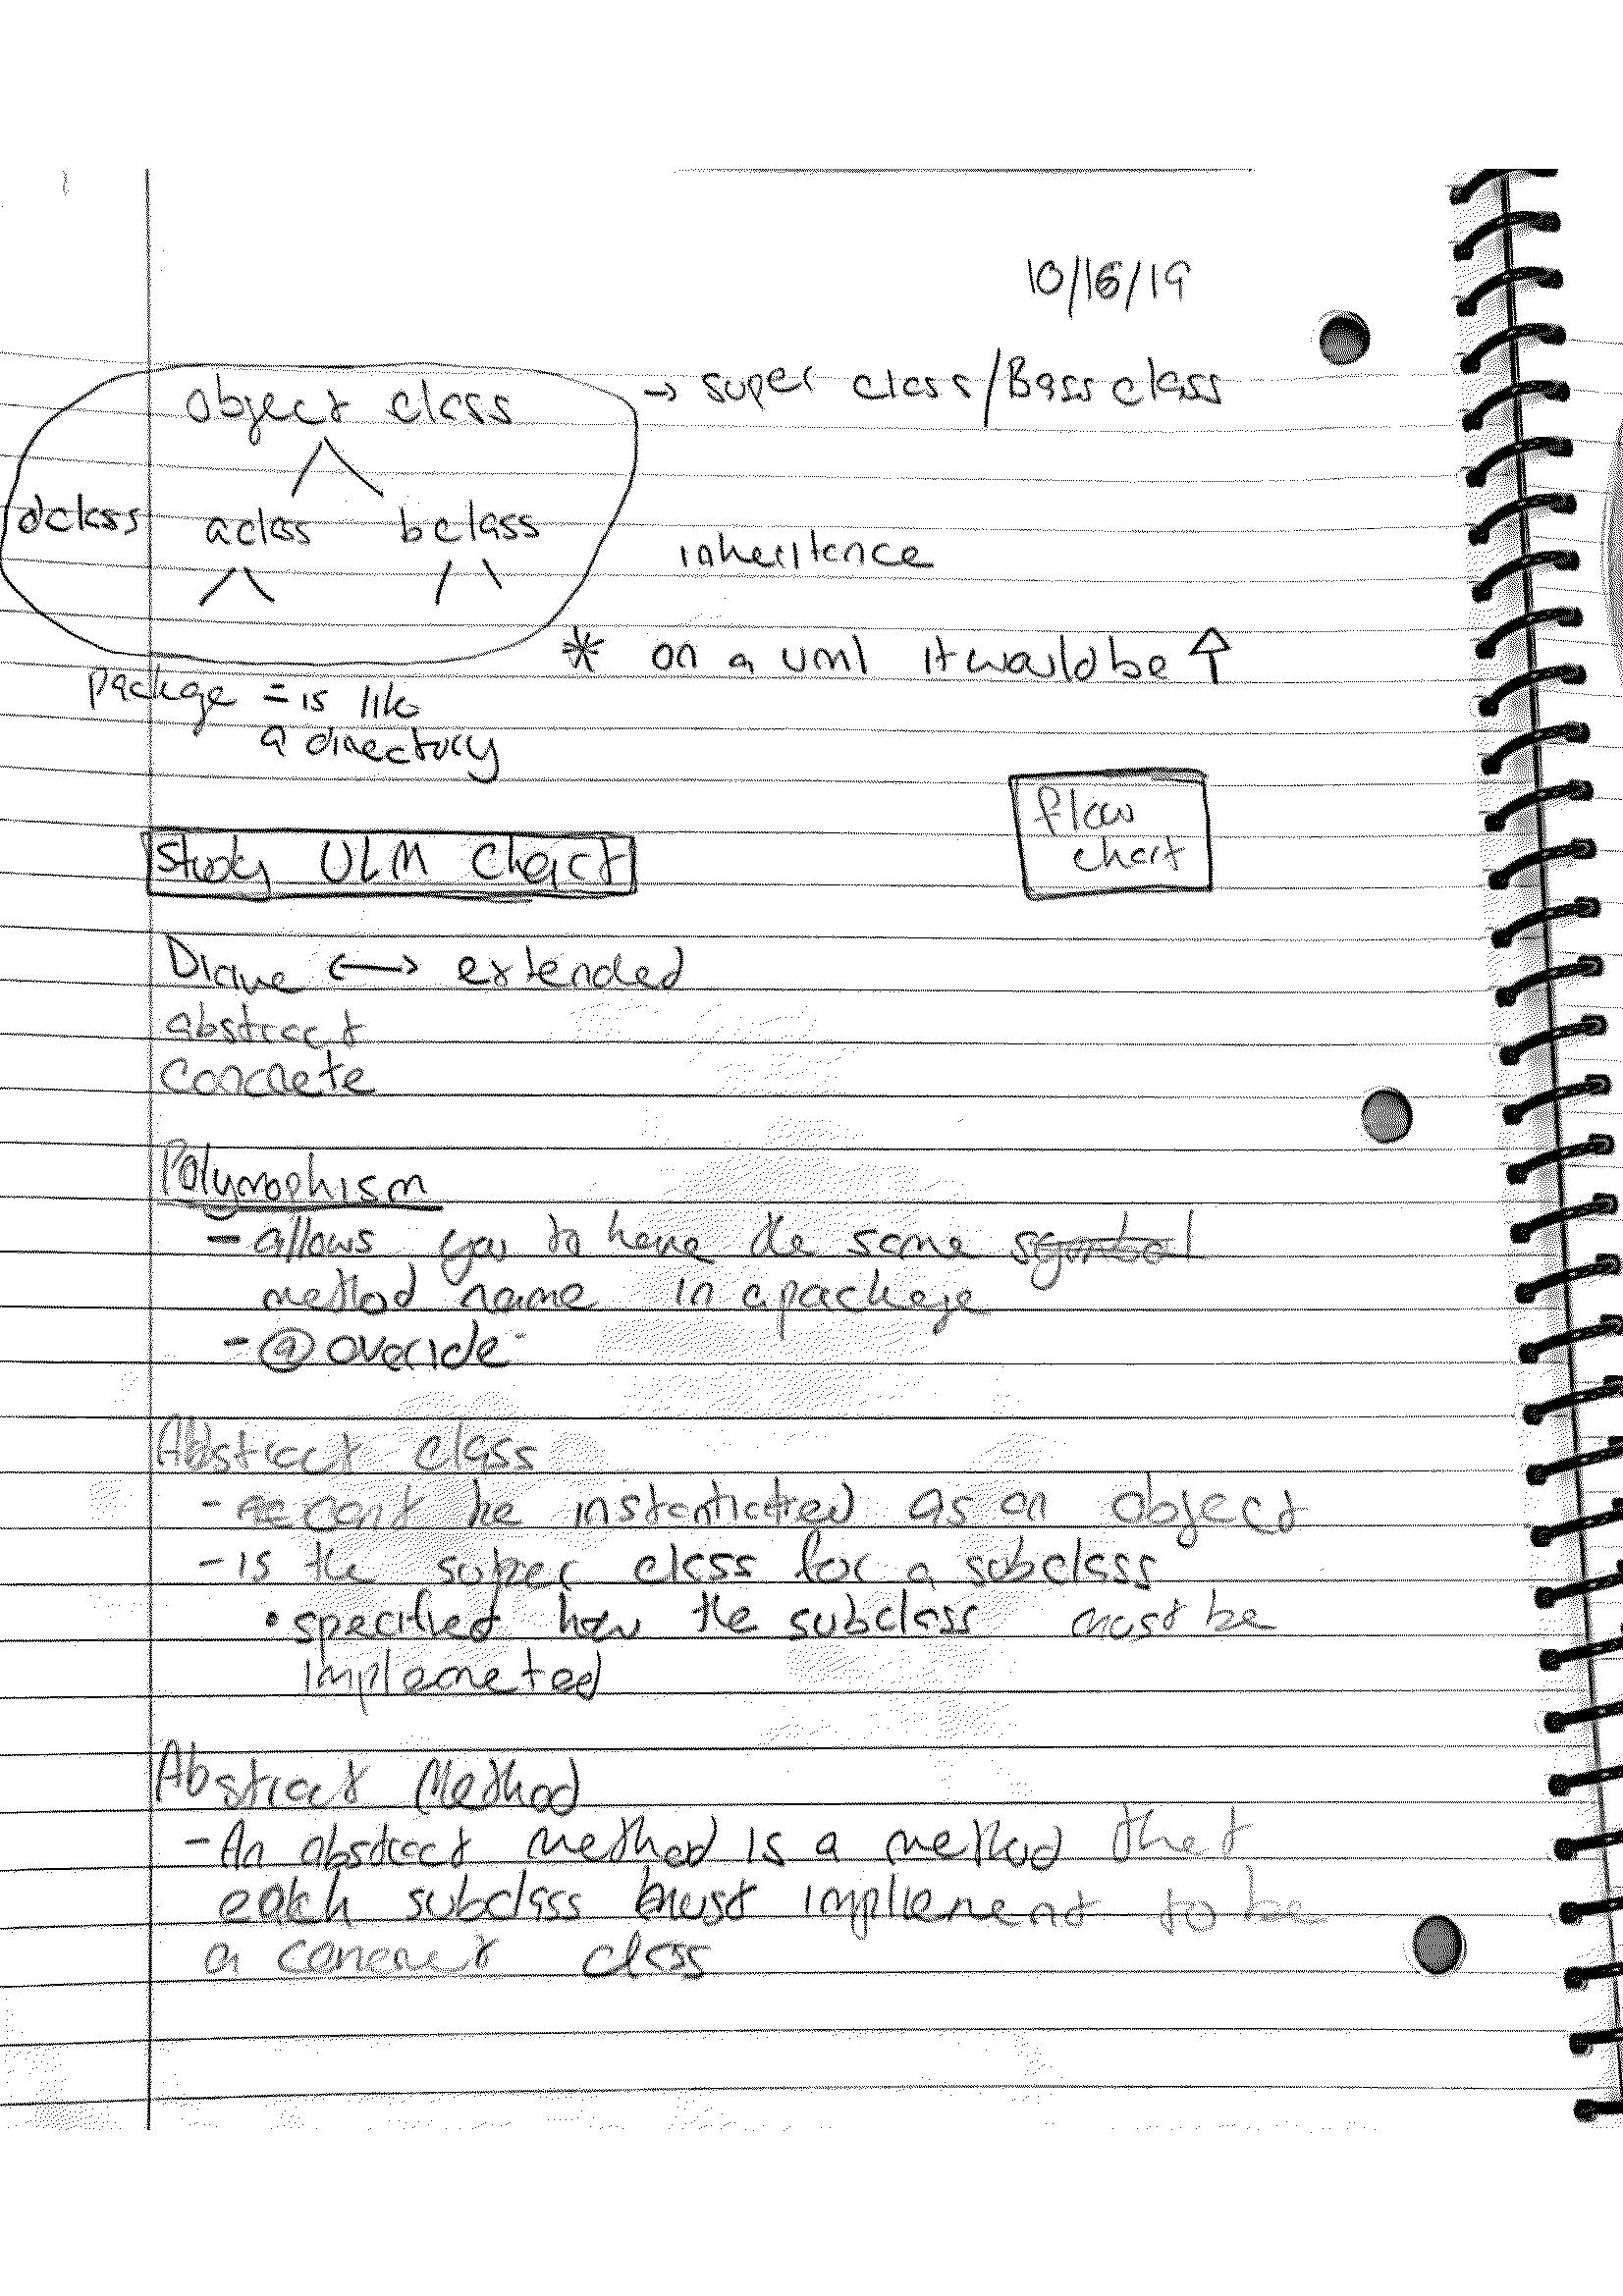 10/16/19
object class → super class/Bass class
dclass aclass bclass
inheritance
* on a uml it would be ↑
package = is like
a directory
flow
chart
Study ULM Chart
↔ extended
abstract
Concrete
Polymophism
- allows you to have the same symbol
method name in a package
- @override
Abstract class
- cant be instantiated as an object
- is the super class for a subclass
• specified how the subclass must be
implemented
Abstract Method
- An abstract method is a method that
each subclass must implement to be
a concret class